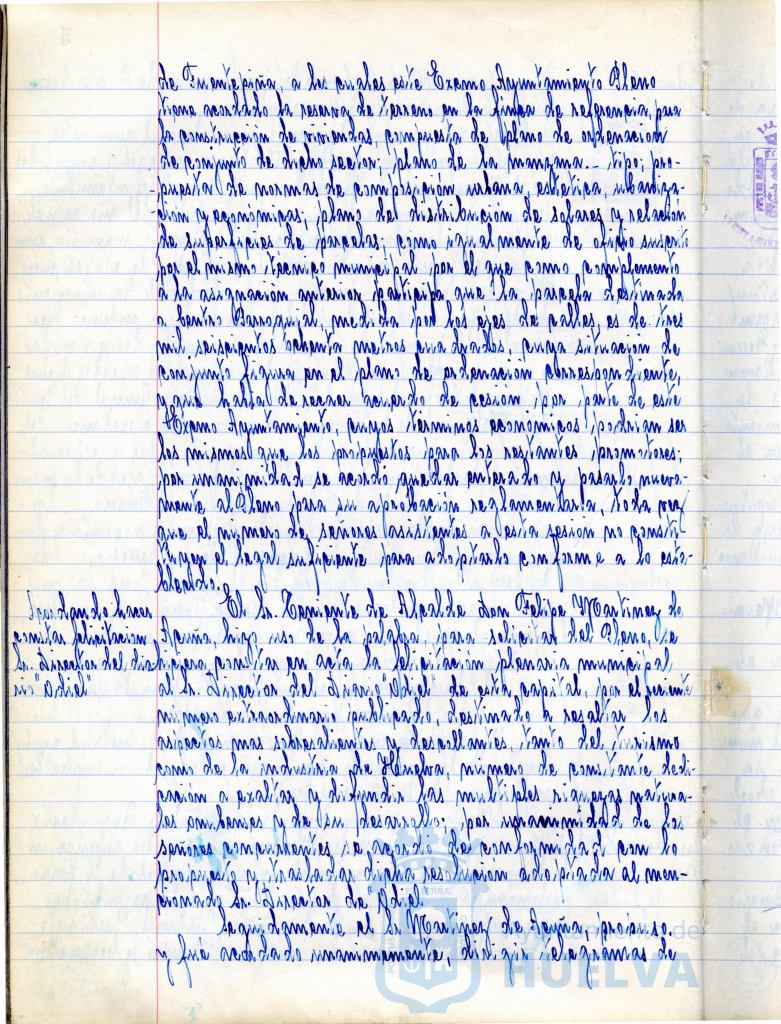 de Fuentepiña, a los cuales este Excmo Ayuntamiento Pleno
tiene acordado la reserva de terreno en la finca de referencia, para
la construcción de viviendas, compuesta de plano de ordenación
de conjunto de dicho sector; plano de la manzana - tipo; pro-
puesta de normas de composición urbana, estética, urbaniza-
ción y económicas; plano de distribución de solares y relación
de superficies de parcelas; como igualmente de oficio suscrito
por el mismo técnico municipal por el que como complemento
a la asignación anterior participa que la parcela destinada
a Centro Parroquial, medida por los ejes de calles, es de tres
mil seiscientos ochenta metros cuadrados, cuya situación de
conjunto figura en el plano de ordenación correspondiente,
y que habrá de recaer acuerdo de cesión por parte de este
Excmo Ayuntamiento, cuyos términos económicos podrían ser
los mismos que los propuestos para los restantes promotores;
por unanimidad se acordó quedar enterado y pasarlo nueva-
mente al Pleno para su aprobación reglamentaria, toda vez
que el número de señores asistentes a esta sesión no consti-
tuyen el legal suficiente para adoptarlo conforme a lo esta-
blecido.
Acordando hacer
constar felicitación
Sr. Director del dia-
rio "Odiel"
El Sr. Teniente de Alcalde Don Felipe Martínez de
Acuña, hizo uso de la palabra, para solicitar del Pleno, se
hiciera constar en acta la felicitación plenaria municipal
al Sr. Director del Diario "Odiel" de esta capital, por el reciente
número extraordinario publicado, destinado a resaltar los
aspectos mas sobresalientes y descollantes, tanto del turismo
como de la industria de Huelva, número de constante dedi-
cación a exaltar y difundir las multiples riquezas natura-
les onubenses y de su desarrollo; por unanimidad de los
señores concurrentes se acordó de conformidad con lo
propuesto y trasladar dicha resolución adoptada al men-
cionado Sr. Director de "Odiel
Seguidamente el Sr Martínez de Acuña, propuso
y fué acordado unanimemente, dirigir telegramas de
Ayuntamiento de
HUELVA